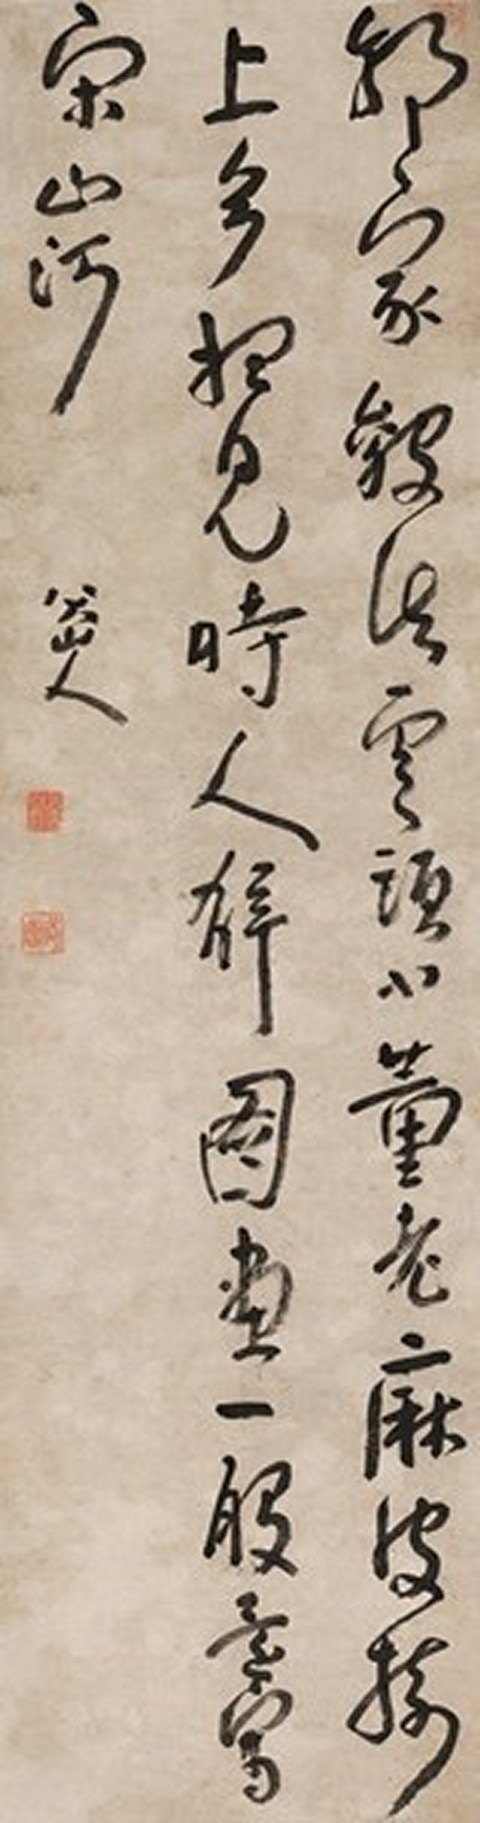 郭家皴法雲頭小董老麻皮樹
上多想見時人解圖畫一般意寫
宋山河
八大山人